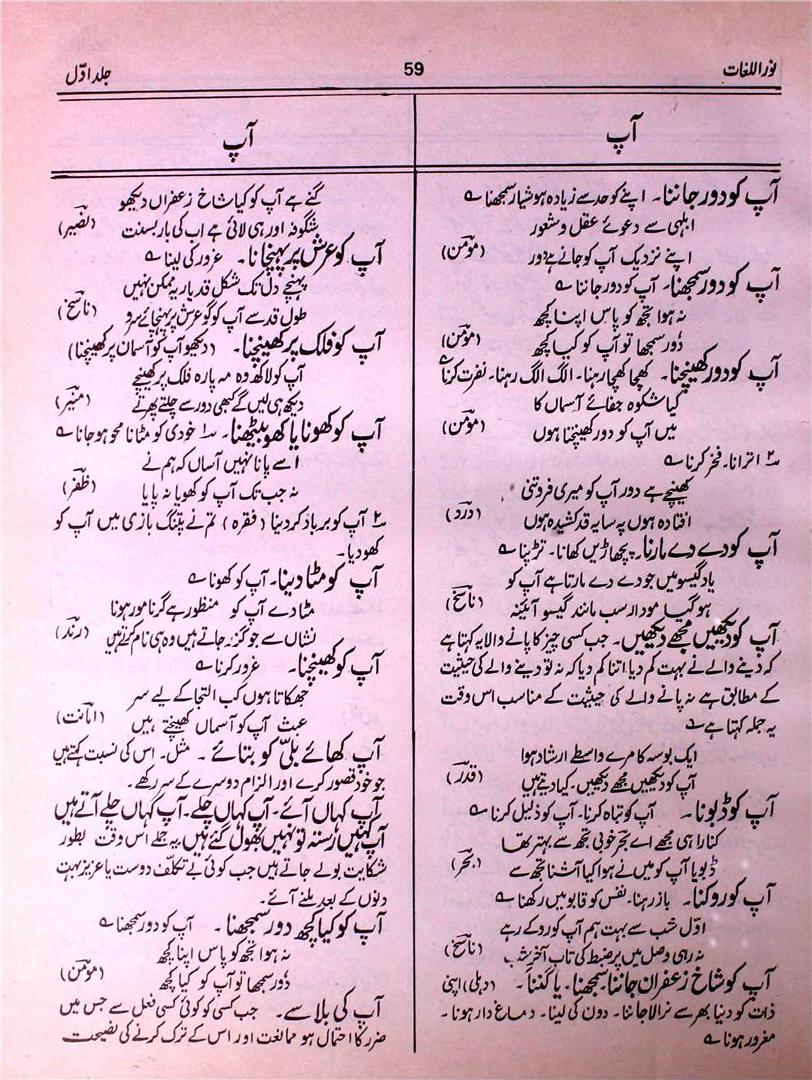 نور اللغات 59 جلد اوّل
آپ
آپ کو دور جاننا۔ اپنے کو حد سے زیادہ ہوشیار سمجھنا ؎
ابلہی سے دعوئے عقل و شعور
اپنے نزدیک آپ کو جانے ہے دور (مومنؔ)
آپ کو دور سمجھنا۔ آپ کو دور جاننا ؎
نہ ہوا تجھ کو پاس اپنا کچھ
دُور سمجھا تو آپ کو کیا کچھ (مومنؔ)
آپ کو دور کھینچنا۔ کھچا کھچا رہنا۔ الگ الگ رہنا۔ نفرت کرنا ؎
کیا شکوہ جفائے آسماں کا
میں آپ کو دور کھینچتا ہوں (مومنؔ)
۲ اترانا۔ فخر کرنا ؎
کھینچے ہے دور آپ کو میری فروتنی
افتادہ ہوں پہ سایہ قد کشیدہ ہوں (دردؔ)
آپ کو دے دے مارنا۔ پچھاڑیں کھانا۔ تڑپنا ؎
یاد گیسو میں جو دے دے مارتا ہے آپ کو
ہو گیا مودار سب مانند گیسو آئینہ (ناسخؔ)
آپ کو دیکھیں مجھے دیکھیں۔ جب کسی چیز کا پانے والا یہ کہتا ہے
کہ دینے والے نے بہت کم دیا اتنا کم دیا کہ نہ تو دینے والے کی حیثیت
کے مطابق ہے نہ پانے والے کی حیثیت کے مناسب اس وقت
یہ جملہ کہتا ہے ؎
ایک بوسہ کا مرے واسطے ارشاد ہوا
آپ کو دیکھیں مجھے دیکھیں۔ کیا دیتے ہیں (قدرؔ)
آپ کو ڈبونا۔ آپ کو تباہ کرنا۔ آپ کو ذلیل کرنا ؎
کنارا ہی مجھے اے بحر خوبی تجھ سے بہتر تھا
ڈبویا آپ کو میں نے ہوا کیا آشنا تجھ سے (بحرؔ)
آپ کو روکنا۔ باز رہنا۔ نفس کو قابو میں رکھنا ؎
اوّل شب سے بہت ہم آپ کو روکے رہے
نہ رہی وصل میں پر ضبط کی تاب آخر شب (ناسخؔ)
آپ کو شاخ زعفران جاننا سمجھنا۔ یا گننا۔ (دہلی) اپنی
ذات کو دنیا بھر سے نرالا جاننا۔ دون کی لینا۔ دماغ دار ہونا۔
مغرور ہونا ؎
آپ
گنے ہے آپ کو کیا شاخ زعفراں دیکھو
شگوفہ اور ہی لائی ہے اب کی بار بسنت (نصیرؔ)
آپ کو عرش پر پہنچانا۔ غرور کی لینا ؎
پہنچے دل تک شکل قد یار یہ ممکن نہیں
طول قد سے آپ کو گو عرش پر پہنچائے سرو (ناسخؔ)
آپ کو فلک پر کھینچنا۔ (دیکھو آپ کو آسمان پر کھینچنا)
آپ کو لاکھ وہ مہ پارہ فلک پر کھینچے
دیکھ ہی لیں گے کبھی دور سے چلتے پھرتے (منیرؔ)
آپ کو کھونا یا کھو بیٹھنا۔ ۱ خودی کو مٹانا محو ہو جانا ؎
اسے پانا نہیں آساں کہ ہم نے
نہ جب تک آپ کو کھویا نہ پایا (ظفرؔ)
۲ آپ کو برباد کر دینا (فقرہ) تم نے پتنگ بازی میں آپ کو
کھو دیا۔
آپ کو مٹا دینا۔ آپ کو کھونا ؎
مٹا دے آپ کو منظور ہے گر نامور ہونا
نشاں سے جو گزر جاتے ہیں وہ ہی نام کرتے ہیں (رندؔ)
آپ کو کھینچنا۔ غرور کرنا ؎
جھکاتا ہوں کب التجا کے لیے سر
عبث آپ کو آسماں کھینچتے ہیں (امانتؔ)
آپ کھائے بلّی کو بتائے۔ مثل۔ اس کی نسبت کہتے ہیں
جو خود قصور کرے اور الزام دوسرے کے سر رکھے۔
آپ کہاں آئے۔ آپ کہاں چلے۔ آپ کہاں چلے آتے ہیں
آپ کہیں رستہ تو نہیں بھول گئے ہیں۔ یہ جملے اس وقت بطور
شکایت بولے جاتے ہیں جب کوئی بے تکلف دوست یا عزیز بہت
دنوں کے بعد ملنے آئے۔
آپ کو کیا کچھ دور سمجھنا۔ آپ کو دور سمجھنا ؎
نہ ہوا تجھ کو پاس اپنا کچھ
دُور سمجھا تو آپ کو کیا کچھ (مومنؔ)
آپ کی بلا سے۔ جب کسی کو کوئی کسی فعل سے جس میں
ضرر کا احتمال ہو ممالغت اور اس کے ترک کرنے کی نصیحت